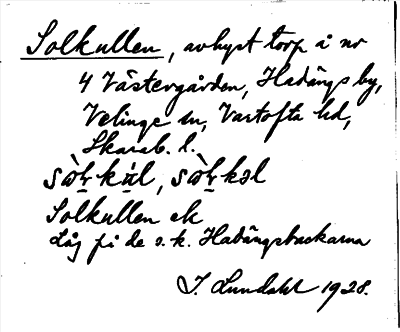 Solkullen, avhyst torp å nr
4 Västergården, Hadängs by,
Velinge sn, Vartofta hd,
Skarab. l.
Solkullen ek
Låg på de s.k. Hadängsbackarna
J. Lundahl 1928.